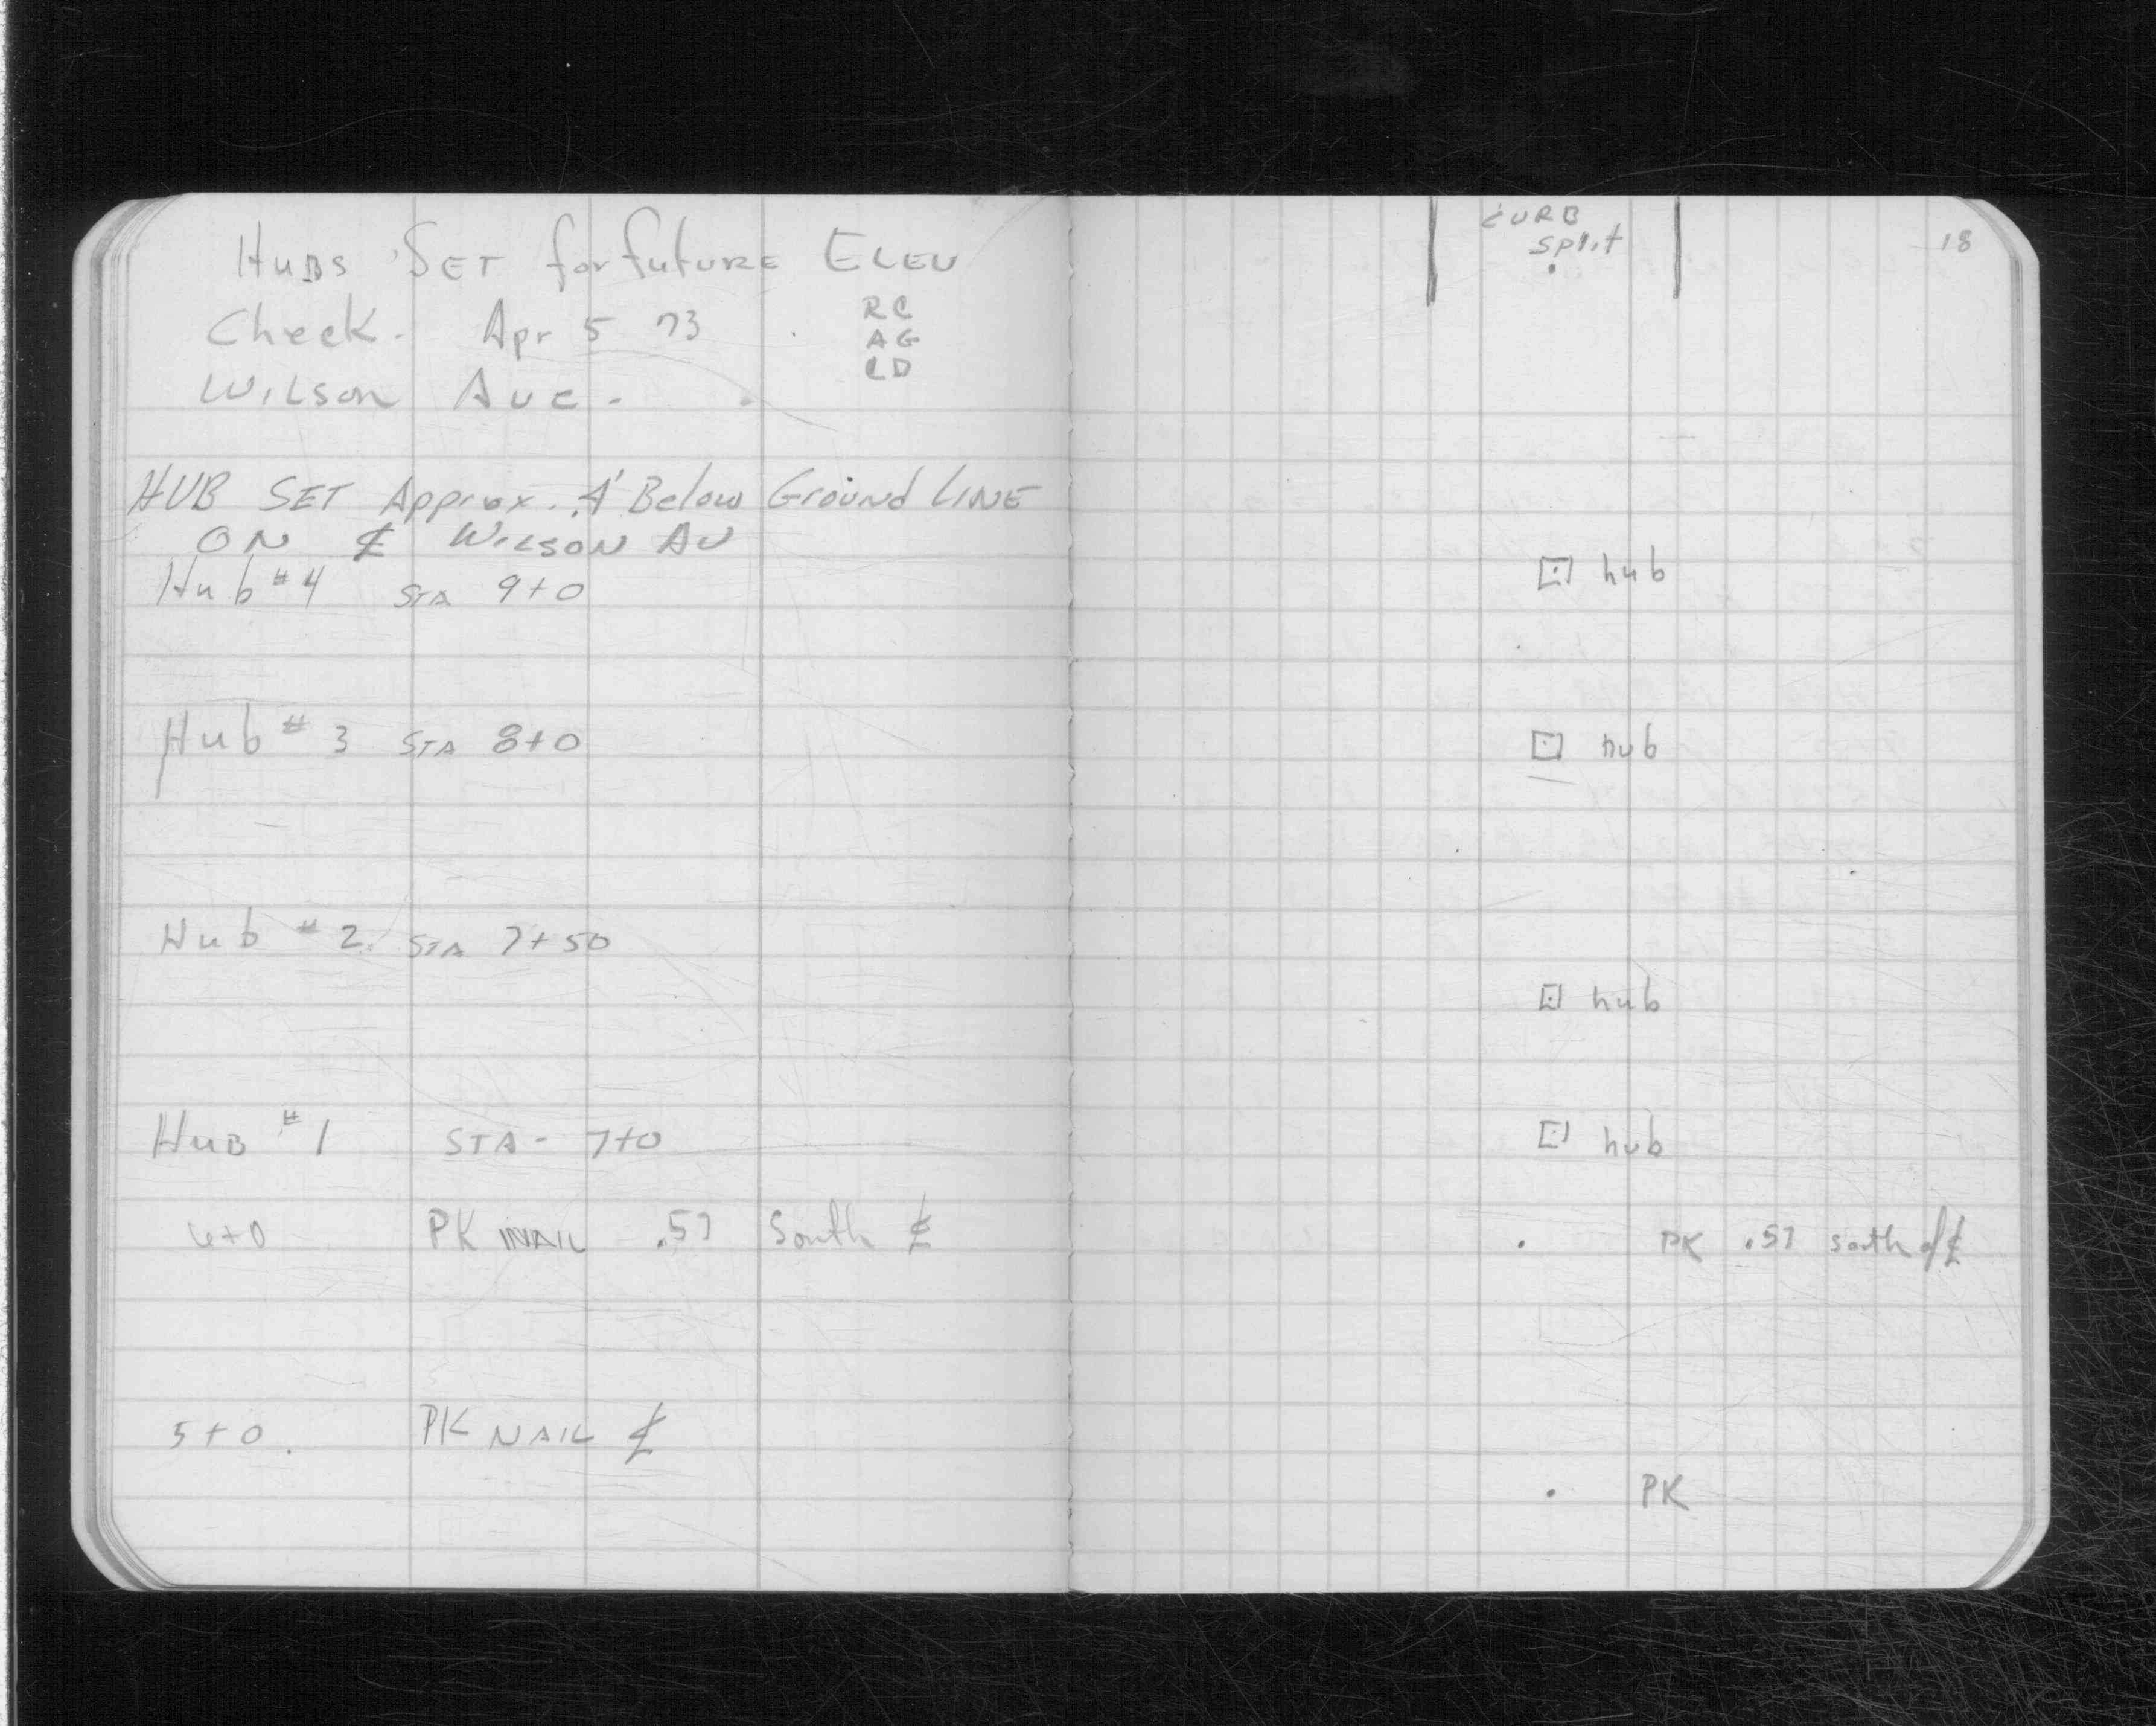 HUBS SET for future ELEV
Check. Apr 5 73
Wilson Ave.
RC
AG
CD
HUB SET Approx. .4' Below Ground LINE
ON ℄ WILSON AV
Hub #4 STA 9+0
Hub #3 STA 8+0
Hub #2 STA 7+50
HUB #1 STA- 7+0
6+0 PK NAIL .57 South ℄
5+0. PK NAIL ℄
18
CURB
split
hub
hub
hub
hub
PK .57 south of ℄
PK